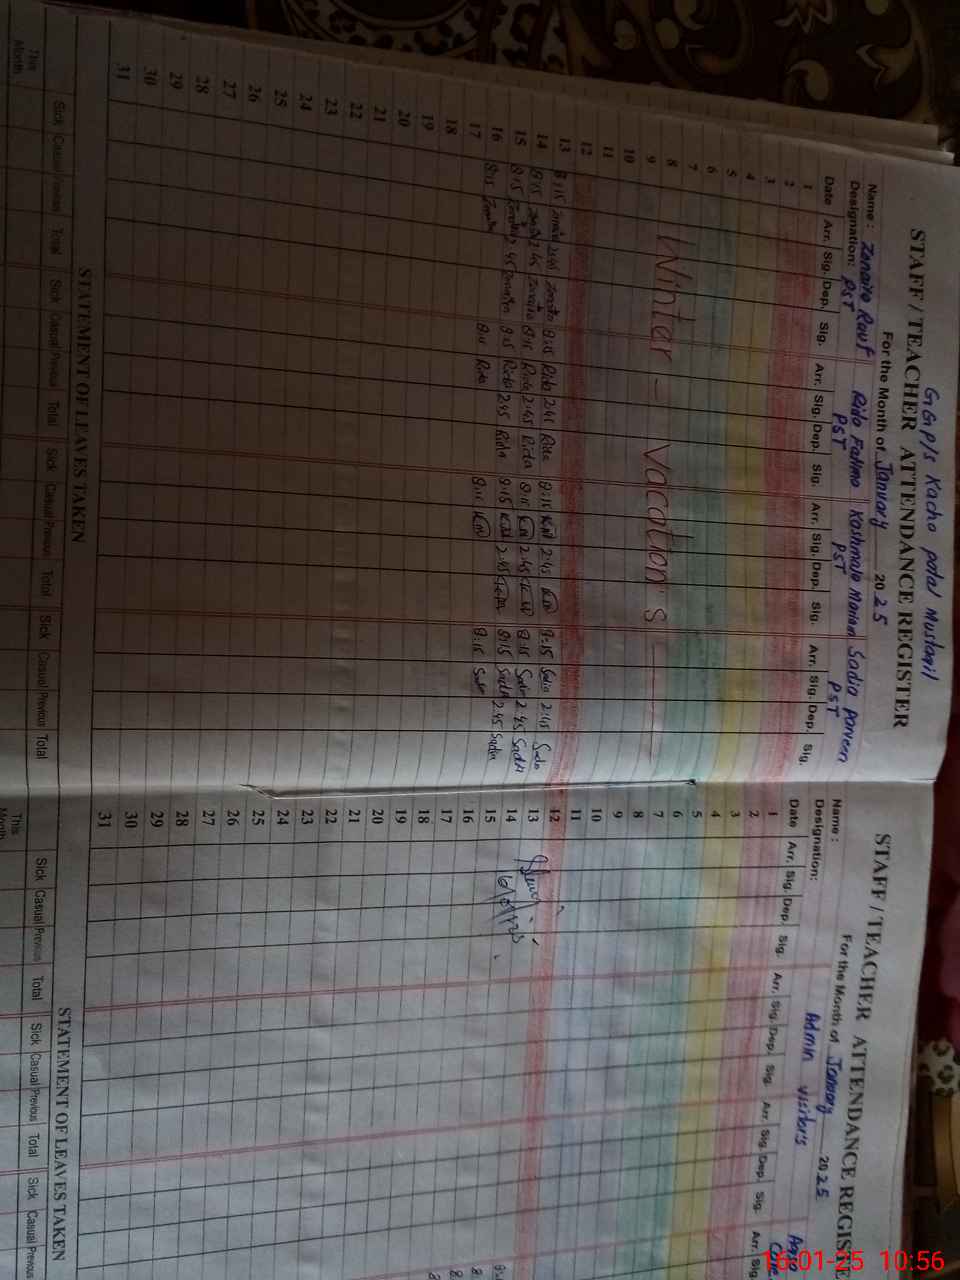 GGP/S Kacho potal Mustaqil
STAFF / TEACHER ATTENDANCE REGISTER
For the Month of January 2025
Name : Zonaira Rauf Rida Fatima Kashmala Marian Sadia parveen
Designation: PST PST PST PST
Date Arr. Sig. Dep. Sig. Arr. Sig. Dep. Sig. Arr. Sig. Dep. Sig. Arr. Sig. Dep. Sig.
1
2
3
4
5
6
7
8 Winter - Vacation's
9
10
11
12
13 8:15 2:45 8:15 Rida 2:45 Rida 8:15 KM 2:45 KM 8:15 Sadia 2:45 Sadia
14 8:15 2:45 8:15 Rida 2:45 Rida 8:15 KM 2:45 KM 8:15 Sadia 2:45 Sadia
15 8:15 2:45 8:15 Rida 2:45 Rida 8:15 KM 2:45 8:15 Sadia 2:45 Sadia
16 8:15 8:15 Rida 8:15 KM 8:15 Sadia
17
18
19
20
21
22
23
24
25
26
27
28
29
30
31
STATEMENT OF LEAVES TAKEN
Sick Casual Previous Total Sick Casual Previous Total Sick Casual Previous Total Sick Casual Previous Total
This Month
STAFF / TEACHER ATTENDANCE REGISTE
For the Month of January 2025
Name : Admin visitor's
Designation:
Date Arr. Sig. Dep. Sig. Arr. Sig. Dep. Sig. Arr. Sig. Dep. Sig. Arr. Sig.
1
2
3
4
5
6
7
8
9
10
11
12
13
14 16/01/25
15
16
17
18
19
20
21
22
23
24
25
26
27
28
29
30
31
STATEMENT OF LEAVES TAKEN
Sick Casual Previous Total Sick Casual Previous Total Sick Casual Previous
This Month
16-01-25 10:56